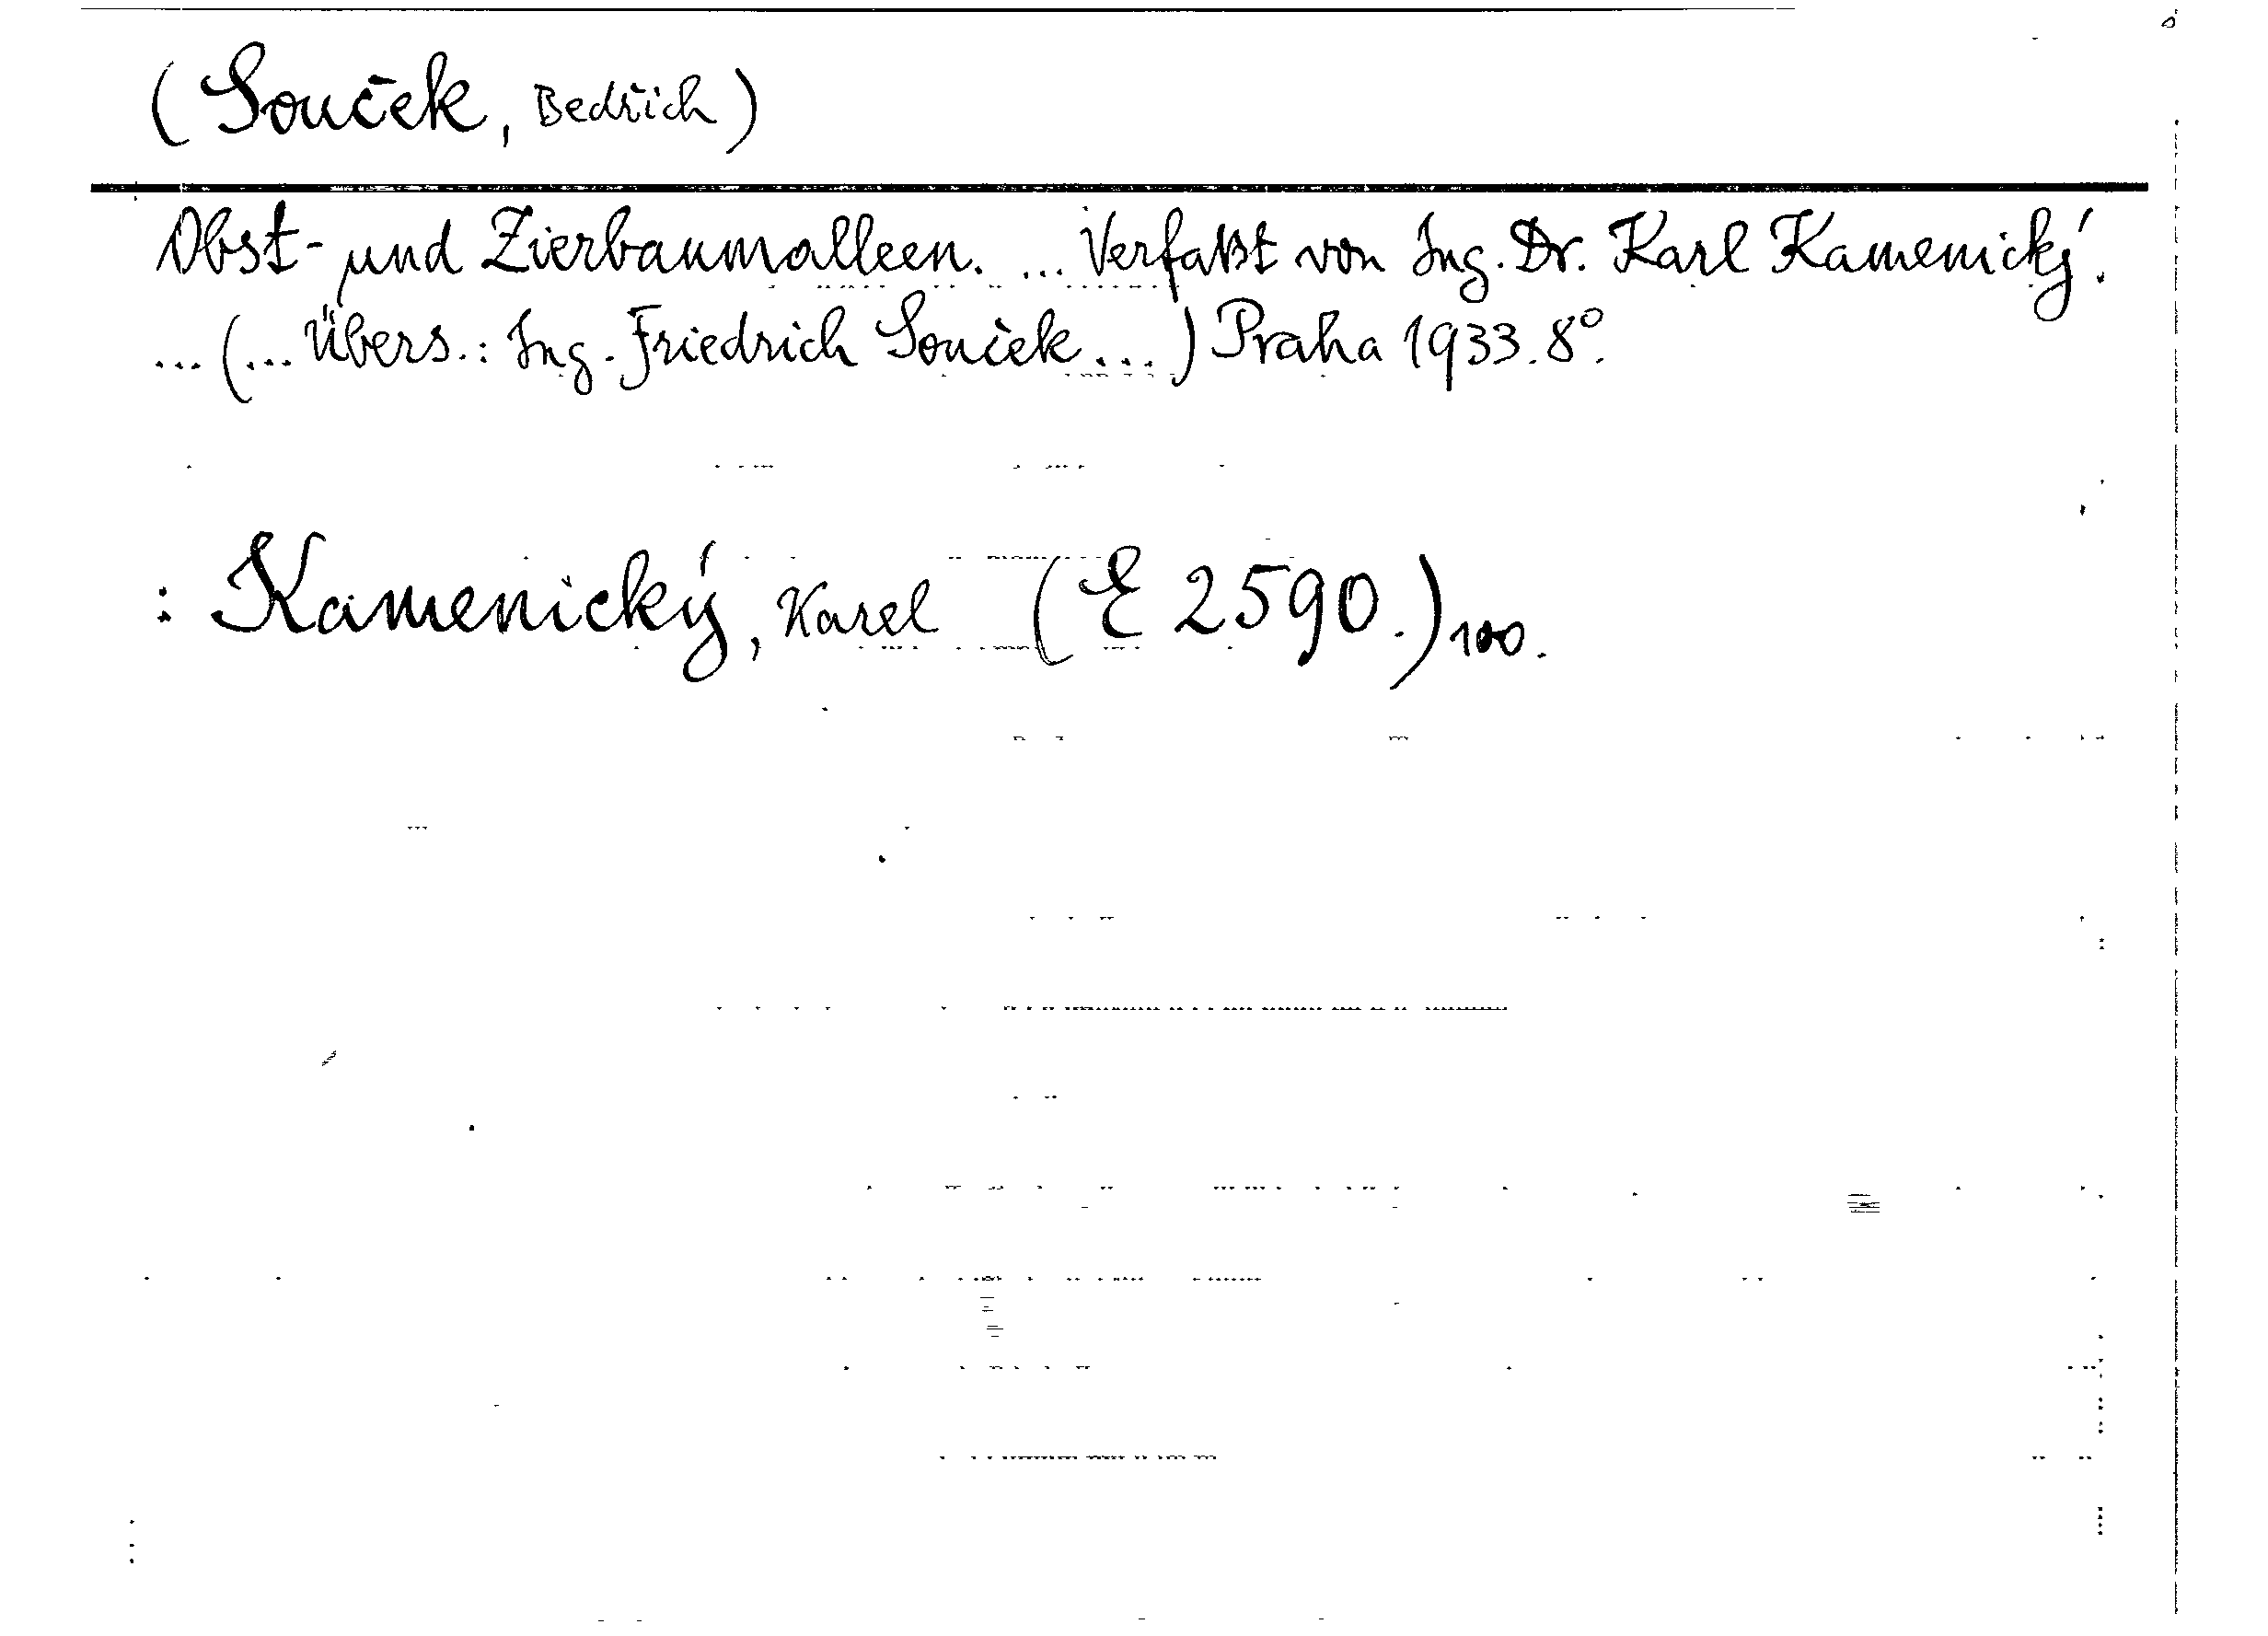 (Souček, Bedřich)
Obst- und Zierbaumalleen. ... Verfaßt von Ing. Dr. Karl Kamenický.
... (... Übers.: Ing. Friedrich Souček ...) Praha 1933. 8°.
: Kamenický, Karel (E 2590.) 100.